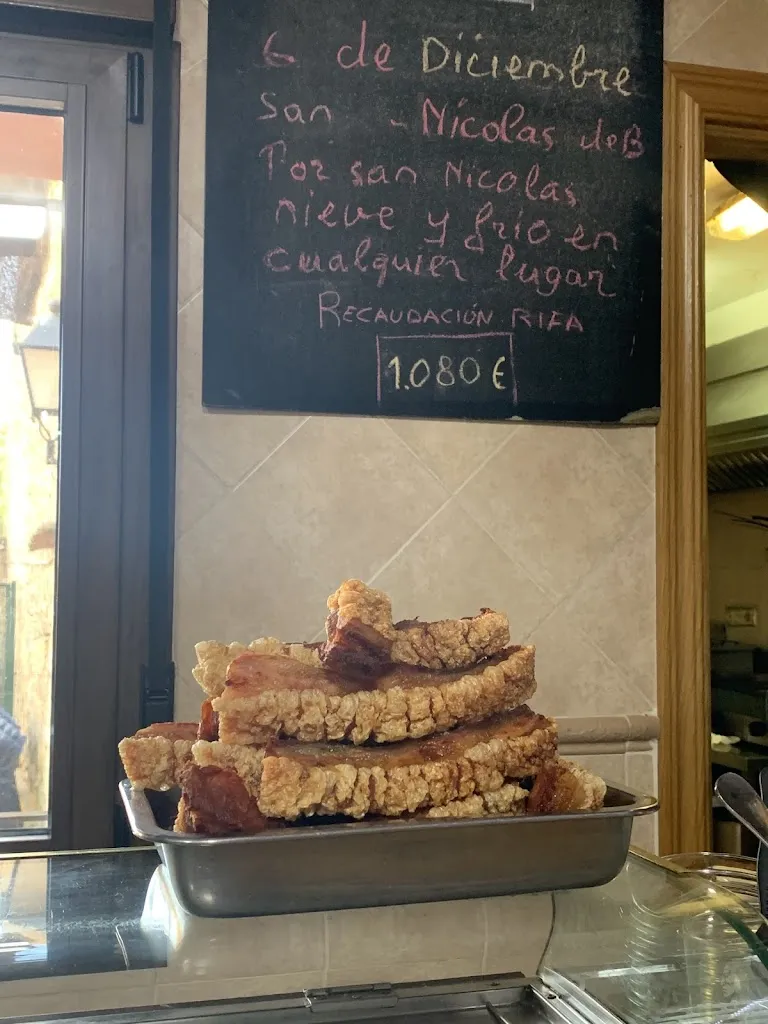 6 de Diciembre
San - Nícolas de B
Por san Nicolas,
nieve y frio en
cualquier lugar
RECAUDACIÓN RIFA
1.080 €